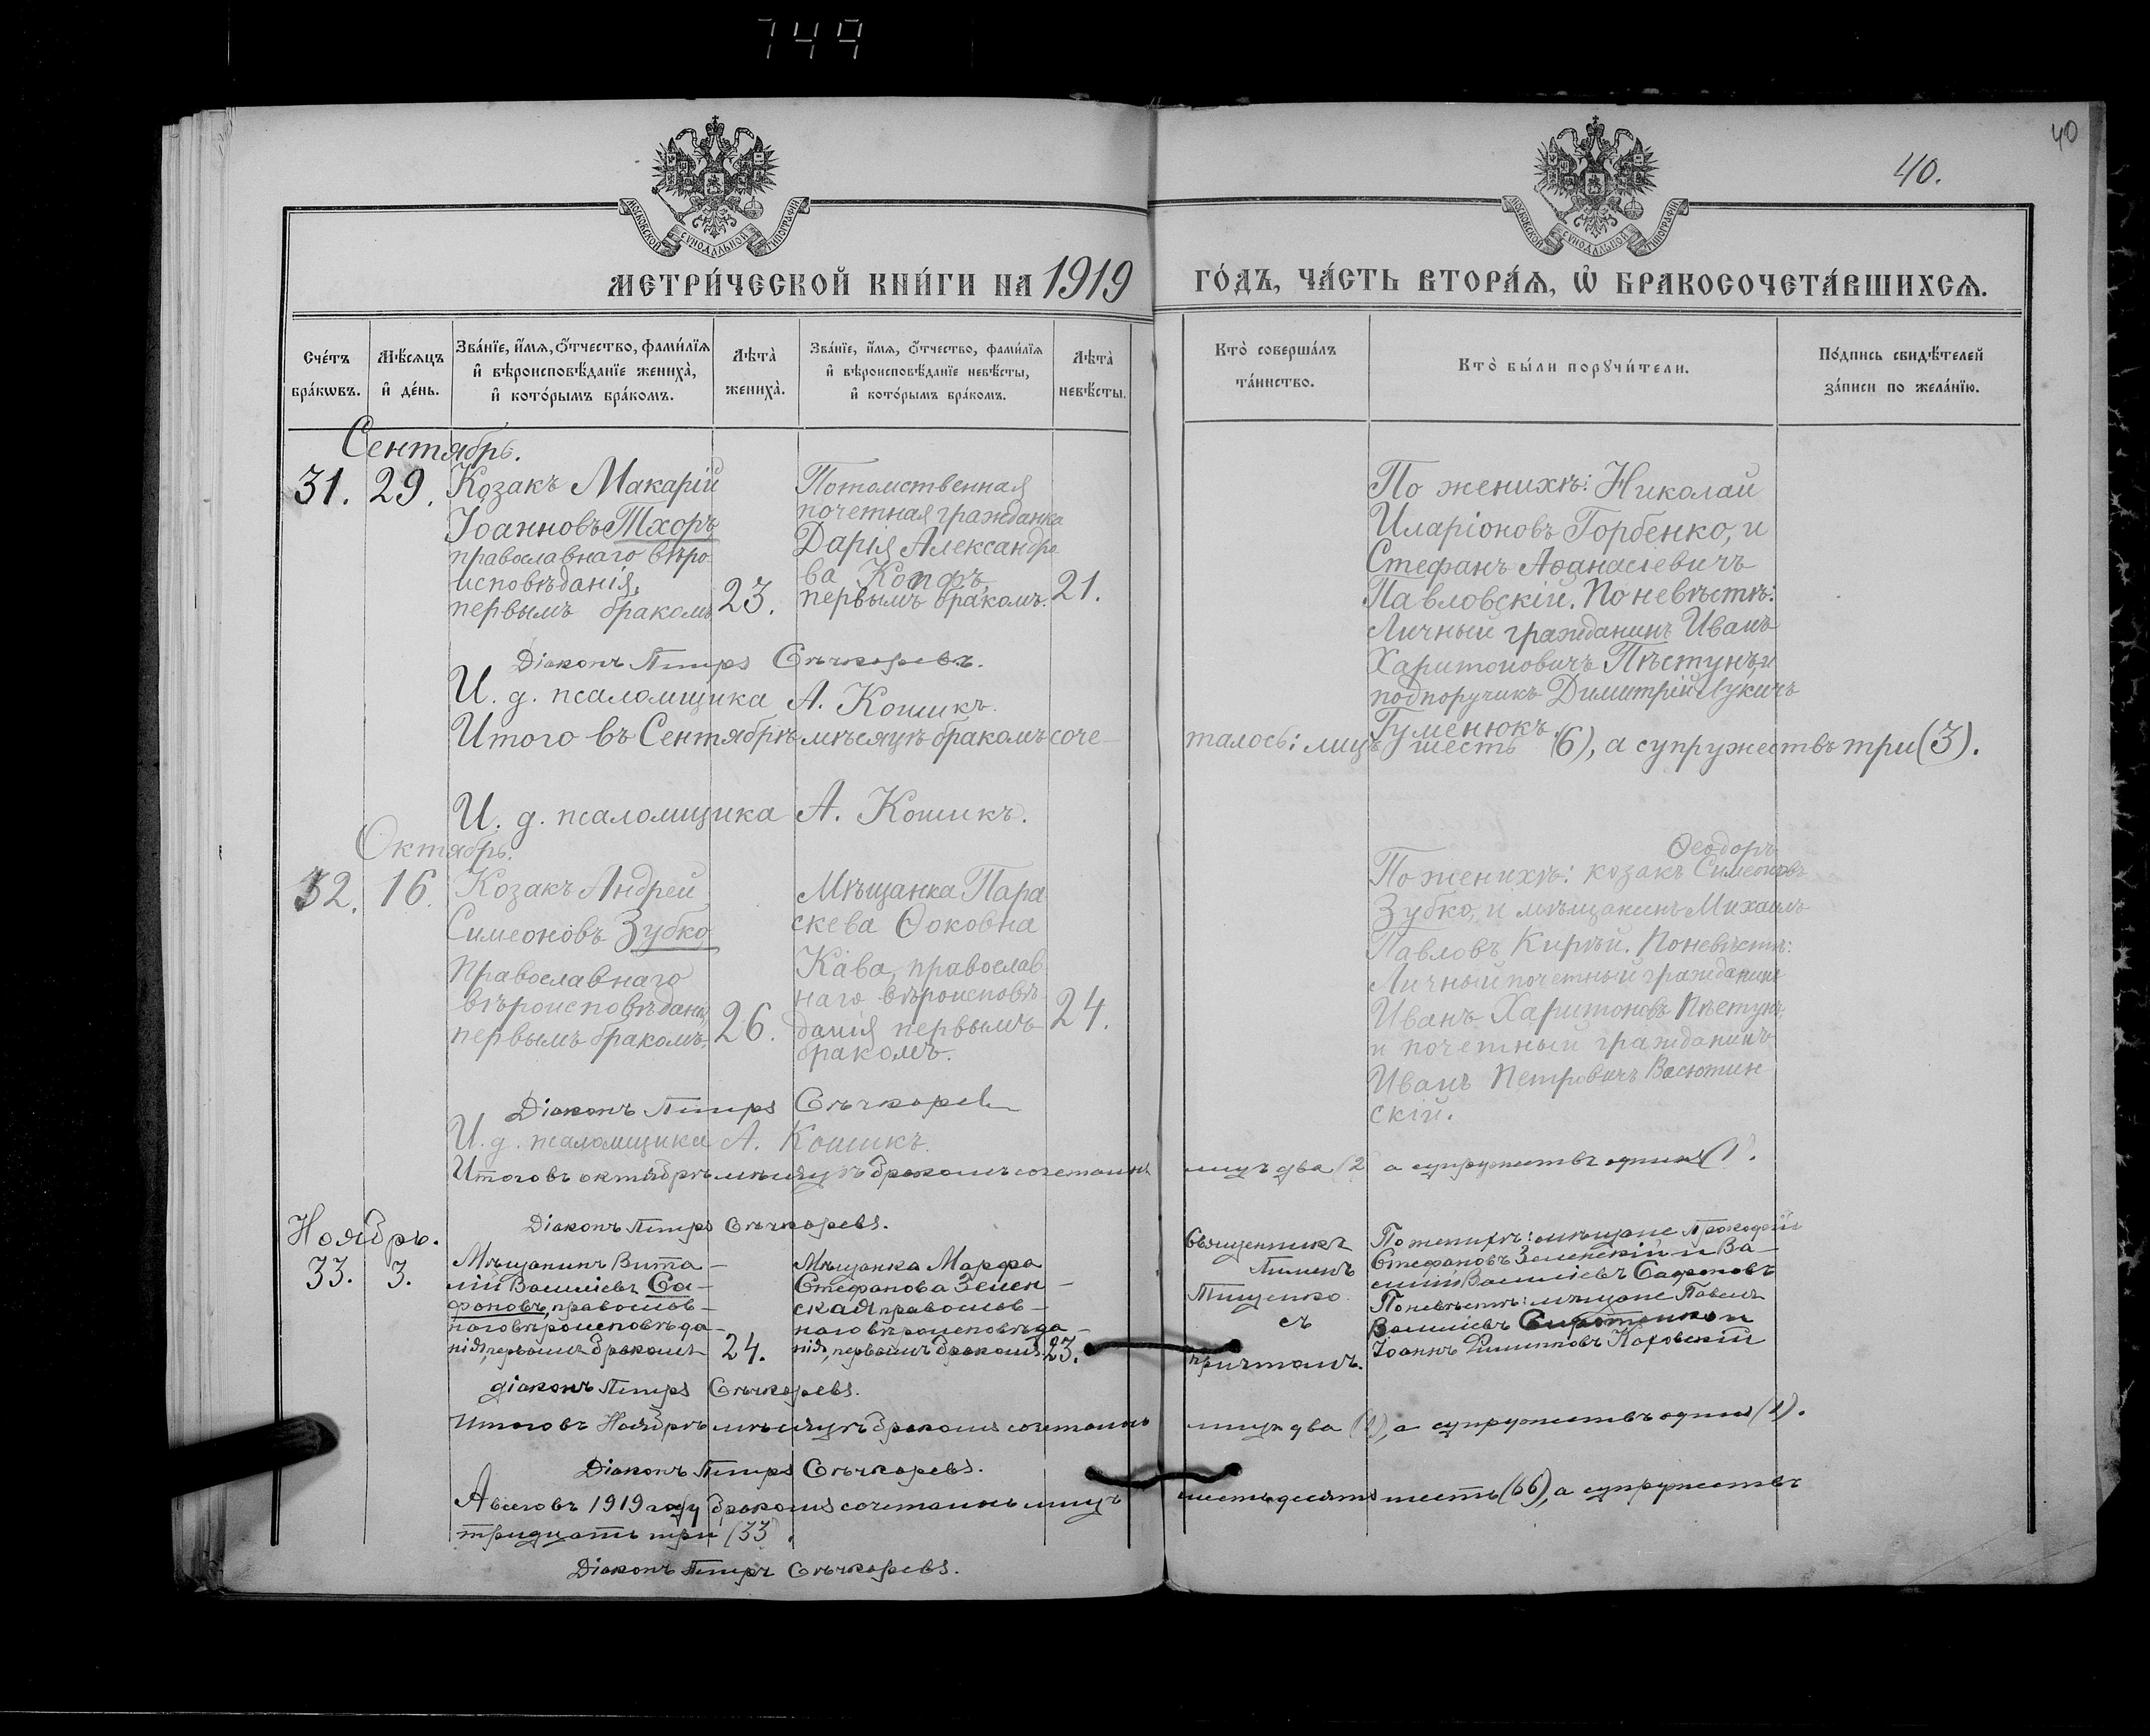 749
40
40.
МОСКОВСКОЙ СѴНОДАЛЬНОЙ ТИПОГРАФІИ
МОСКОВСКОЙ СѴНОДАЛЬНОЙ ТИПОГРАФІИ
МЕТРИ́ЧЕСКОЙ КНИ́ГИ НА 1919
ГО́ДЪ, ЧА́СТЬ ВТОРА́Ѧ, Ѡ҆ БРАКОСОЧЕТА́ВШИХСѦ.
Сче́тъ
бра́кѡвъ.
Мѣ́сѧцъ
и҆ де́нь.
Зва́нїе, и҆́мѧ, ѻ҆́тчество, фами́лїѧ
и҆ вѣроисповѣ́данїе жениха̀,
и҆ кото́рымъ бра́комъ.
Лѣта̀
жениха̀.
Зва́нїе, и҆́мѧ, ѻ҆́тчество, фами́лїѧ
и҆ вѣроисповѣ́данїе невѣ́сты,
и҆ кото́рымъ бра́комъ.
Лѣта̀
невѣ́сты.
Кто̀ соверша́лъ
та́инство.
Кто̀ бы́ли порꙋчи́тели.
По́дпись свидѣ́телей
за́писи по жела́нїю.
Сентябрь.
31.
29.
Козакъ Макарій
Іоанновъ Тхоръ,
православнаго вѣро
исповѣданія,
первымъ бракомъ
23.
Потомственная
почетная гражданка
Дарія Александро
ва
первымъ бракомъ.
21.
По женихѣ: Николай
Иларіоновъ Горбенко, и
Стефанъ Аѳанасіевичъ
Павловскій. По невѣстѣ:
Личный гражданинъ Иванъ
Харитоновичъ Пѣстунъ, и
подпоручикъ Димитрій Лукичъ
Гуменюкъ.
Діаконъ Петръ Сѣчкоревъ.
И. д. псаломщика А. Кошикъ.
Итого въ Сентябрѣ мѣсяцѣ бракомъ соче-
талось: лицъ шесть (6), а супружествъ три (3).
И. д. псаломщика А. Кошикъ.
Октябрь.
32.
16.
Козакъ Андрей
Симеоновъ Зубко,
православнаго
вѣроисповѣданія,
первымъ бракомъ.
26.
Мѣщанка Пара
скева Ѳоковна
Кава, православ
наго вѣроисповѣ
данія первымъ
бракомъ.
24.
Ѳеодоръ
По женихѣ: козакъ Симеоновъ
Зубко, и мѣщанинъ Михаилъ
Павловъ Кирѣй. По невѣстѣ:
Личный почетный гражданинъ
Иванъ Харитоновъ Пѣстунъ,
и почетный гражданинъ
Иванъ Петровичъ Васютин
скій.
Діаконъ Петръ Сѣчкоревъ
И. д. псаломщика А. Кошикъ.
Итого въ октябрѣ мѣсяцѣ бракомъ сочеталось
лицъ два (2) а супружествъ одинъ (1).
Діаконъ Петръ Сѣчкоревъ.
Ноябрь.
33.
3.
Мѣщанинъ Вита-
лій Василіевъ Са-
фоновъ, православ-
наго вѣроисповѣда-
нія, первымъ бракомъ
24.
Мѣщанка Марфа
Стефанова Зелен-
ская православ-
наго вѣроисповѣда-
нія, первымъ бракомъ
23.
Священникъ
Пименъ
Тищенко
съ
причтомъ.
По женихѣ: мѣщане Прокофій
Стефановъ Зеленскій и Ва-
силій Василіевъ Сафоновъ
По невѣстѣ: мѣщане Павелъ
Василіевъ Сиротенко и
Іоаннъ Филипповъ
діаконъ Петръ Сѣчкоревъ.
Итого въ Ноябрѣ мѣсяцѣ бракомъ сочеталось
лицъ два (2), а супружествъ одинъ (1).
Діаконъ Петръ Сѣчкоревъ.
А всего въ 1919 году бракомъ сочеталось лицъ
шестьдесятъ шесть (66), а супружествъ
тридцать три (33).
Діаконъ Петръ Сѣчкоревъ.